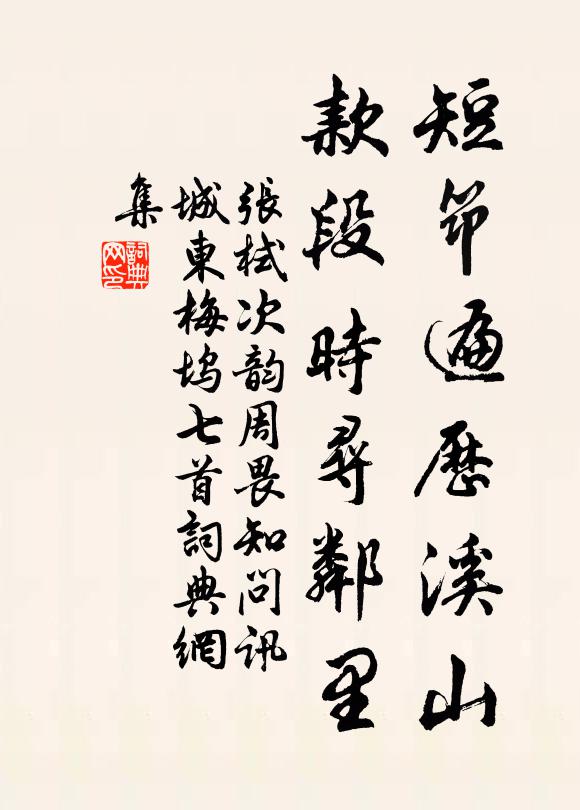 短笻遍歷溪山
款段時尋鄰里
張栻次韵周畏知問訊
城東梅塢七首詞典網
集
詞典
网印